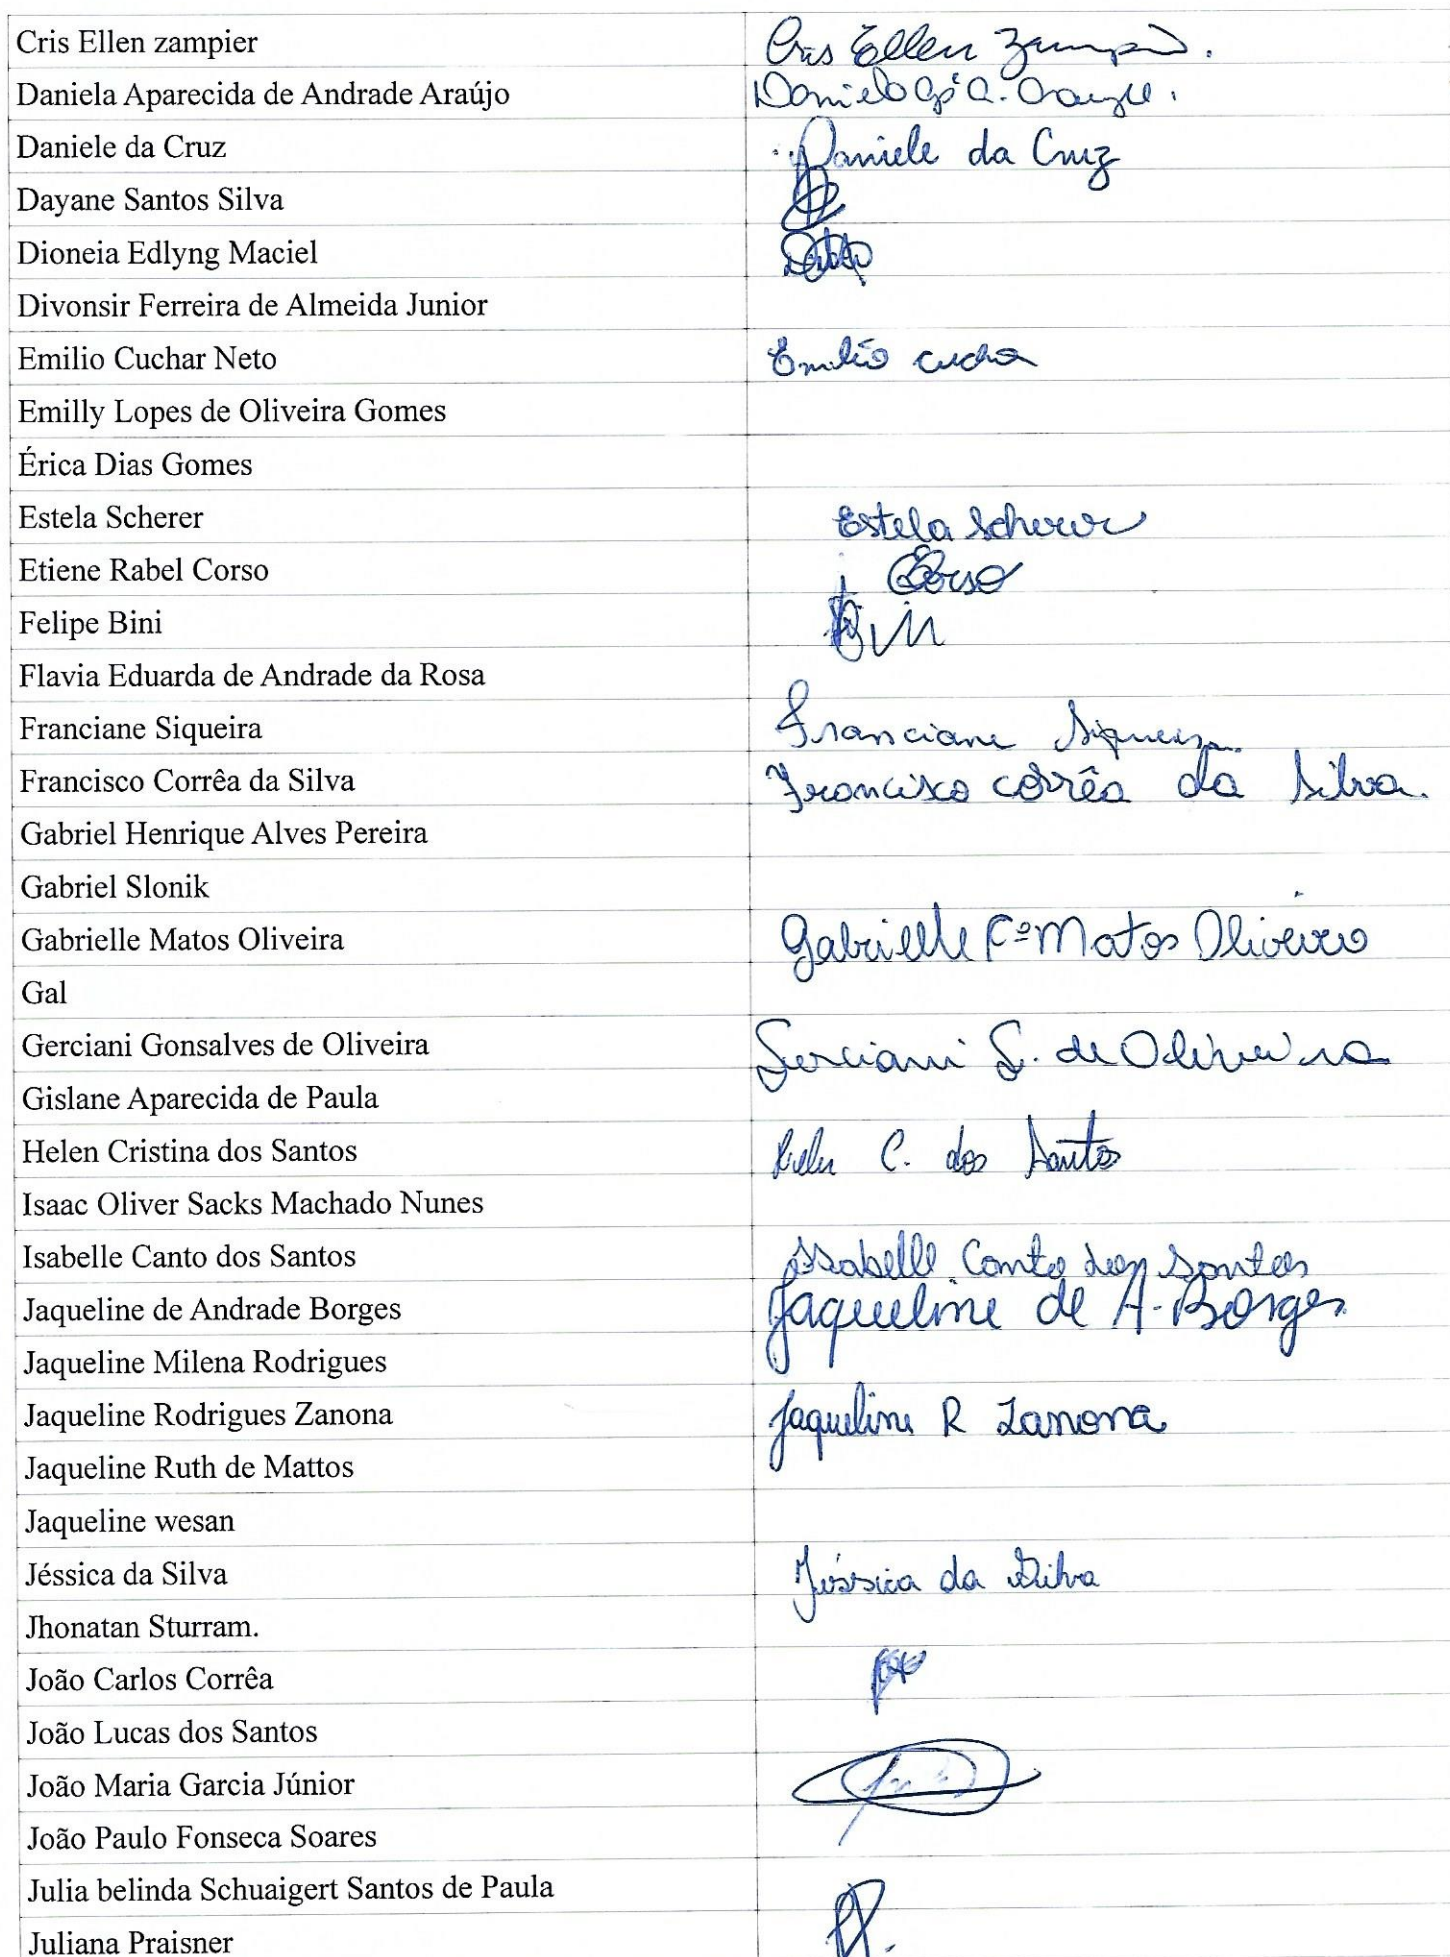 Cris Ellen zampier Cris Ellen
Daniela Aparecida de Andrade Araújo
Daniele da Cruz Daniele da Cruz
Dayane Santos Silva
Dioneia Edlyng Maciel
Divonsir Ferreira de Almeida Junior
Emilio Cuchar Neto Emilio
Emilly Lopes de Oliveira Gomes
Érica Dias Gomes
Estela Scherer Estela Scherer
Etiene Rabel Corso Corso
Felipe Bini
Flavia Eduarda de Andrade da Rosa
Franciane Siqueira Franciane Siqueira
Francisco Corrêa da Silva Francisco corrêa da Silva.
Gabriel Henrique Alves Pereira
Gabriel Slonik
Gabrielle Matos Oliveira Gabrielle Fª Matos Oliveira
Gal
Gerciani Gonsalves de Oliveira Gerciani G. de Oliveira
Gislane Aparecida de Paula
Helen Cristina dos Santos Helen C. dos Santos
Isaac Oliver Sacks Machado Nunes
Isabelle Canto dos Santos Isabelle Canto dos Santos
Jaqueline de Andrade Borges Jaqueline de A. Borges
Jaqueline Milena Rodrigues
Jaqueline Rodrigues Zanona Jaqueline R Zanona
Jaqueline Ruth de Mattos
Jaqueline wesan
Jéssica da Silva Jéssica da Silva
Jhonatan Sturram.
João Carlos Corrêa
João Lucas dos Santos
João Maria Garcia Júnior
João Paulo Fonseca Soares
Julia belinda Schuaigert Santos de Paula
Juliana Praisner